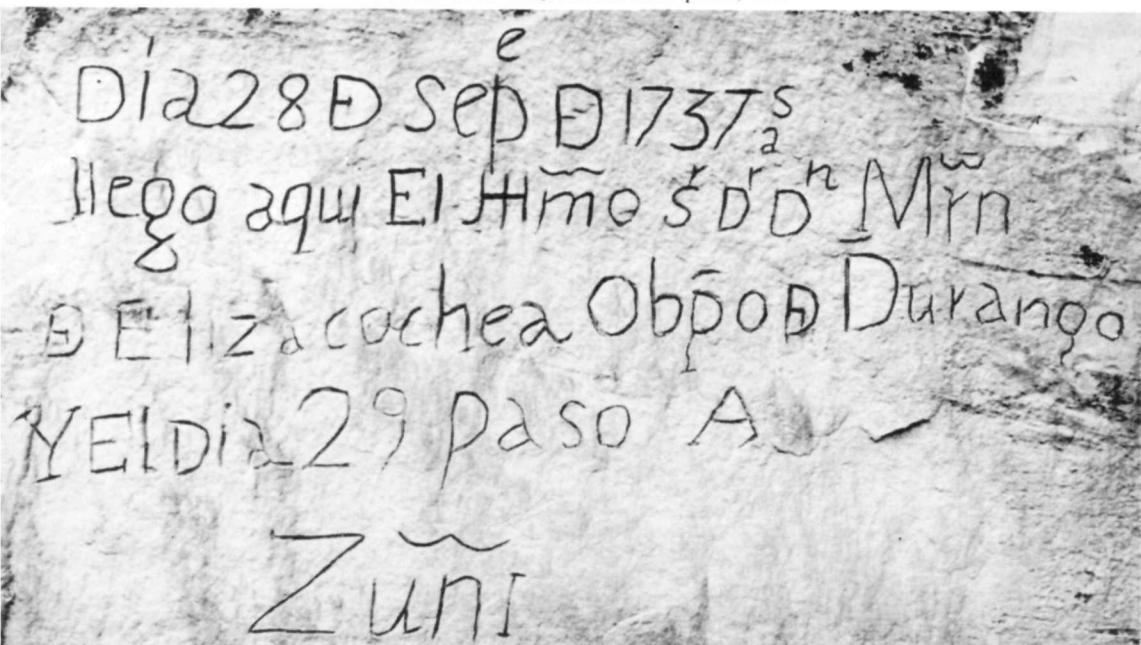 Día 28 Đ Sepᵉ Đ 1737 aˢ
llego aqui El Illm̃o Sʳ Dʳ Dⁿ Mr̃n
Đ Elizacochea Obp̄o Đ Durango
Y El Dia 29 paso A
Zuñi